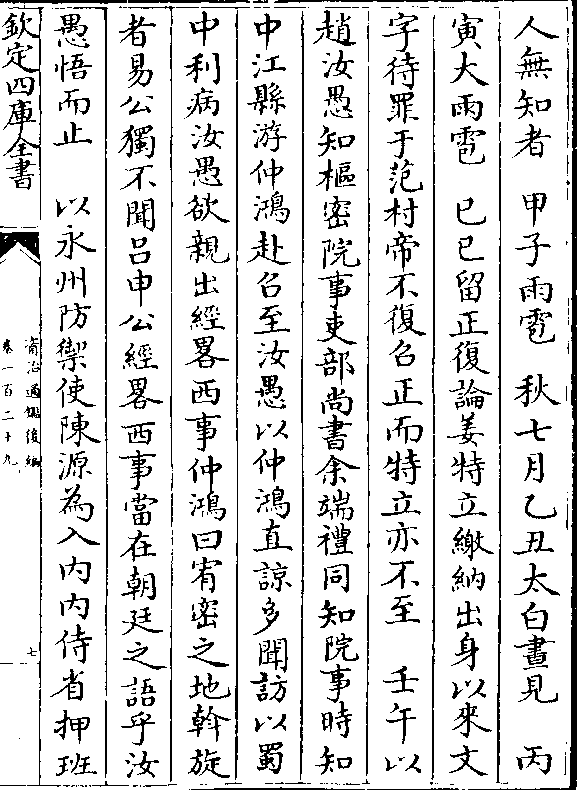 人無知者　甲子雨雹　秋七月乙丑太白晝見　丙
寅大雨雹　己巳留正復論姜特立繳納出身以來文
字待罪于范村帝不復召正而特立亦不至　壬午以
趙汝愚知樞密院事吏部尚書余端禮同知院事時知
中江縣游仲鴻赴召至汝愚以仲鴻直諒多聞訪以蜀
中利病汝愚欲親出經畧西事仲鴻曰宥密之地斡旋
者易公獨不聞吕申公經畧西事當在朝廷之語乎汝
愚悟而止　以永州防禦使陳源為入内内侍省押班
欽定四庫全書
資治通鑑後編
卷一百二十九
七